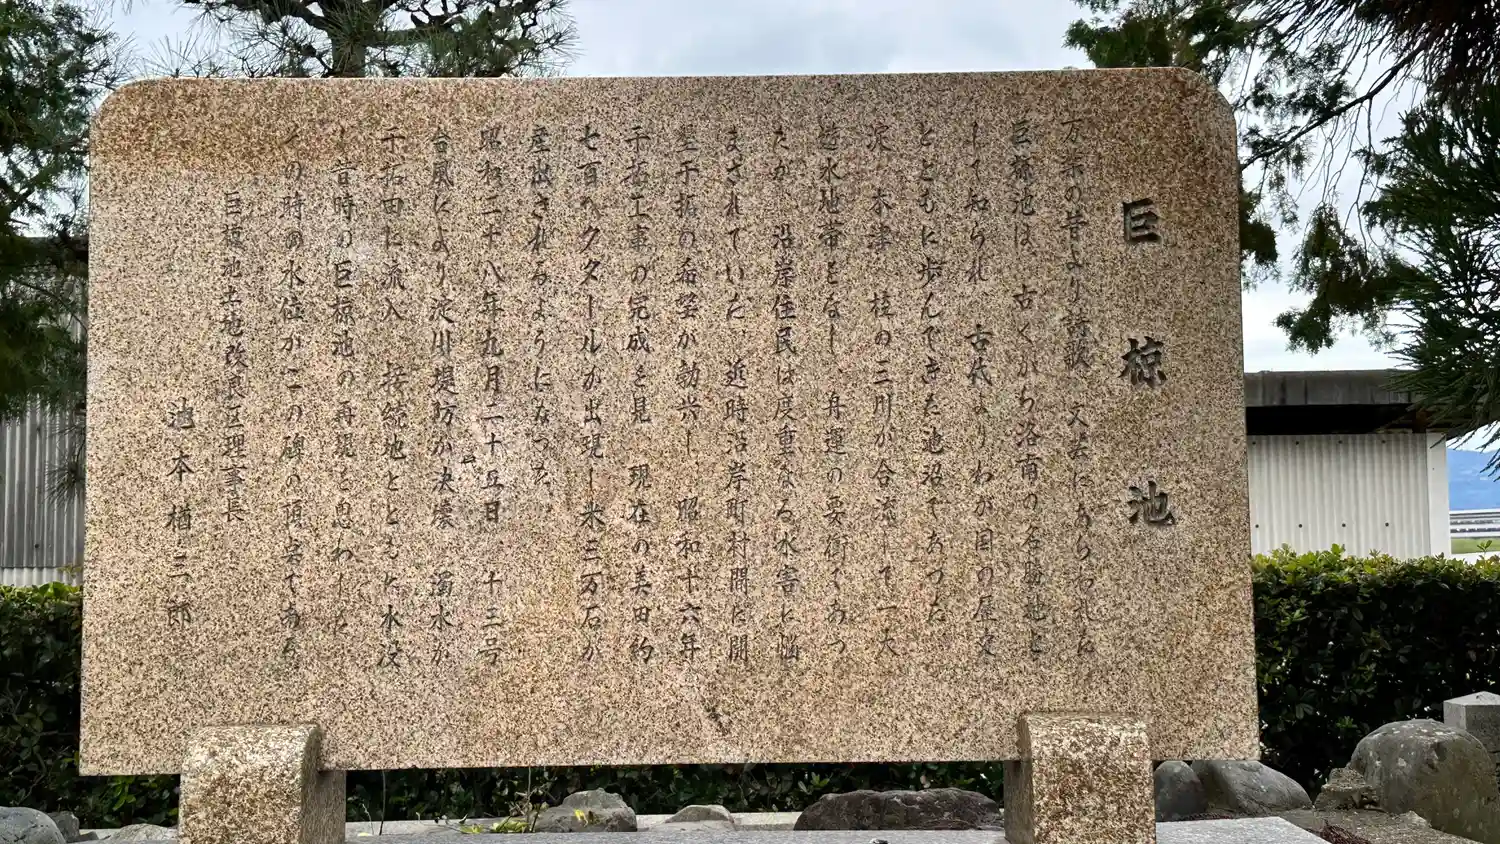 巨椋池
万葉の昔より詩歌、文芸にあらわれた
巨椋池は、古くから洛南の名勝地と
して知られ、古代よりわが国の歴史
とともに歩んできた池沼であった
淀、木津、桂の三川が合流して一大
遊水地帯をなし、舟運の要衝であっ
たが、沿岸住民は度重なる水害に悩
まされていた、近時沿岸町村間に開
墾干拓の希望が勃発し、昭和十六年
干拓工事の完成を見、現在の美田約
七百ヘクタールが出現し米三万石が
産出されるようになった、
昭和二十八年九月二十五日、十三号
台風により淀川堤防が決壊、濁水が
干拓田に流入、接続地とともに水没
し昔時の巨椋池の再現を思わした
その時の水位がこの碑の頂点である
巨椋池土地改良区理事長
池本楢三郎